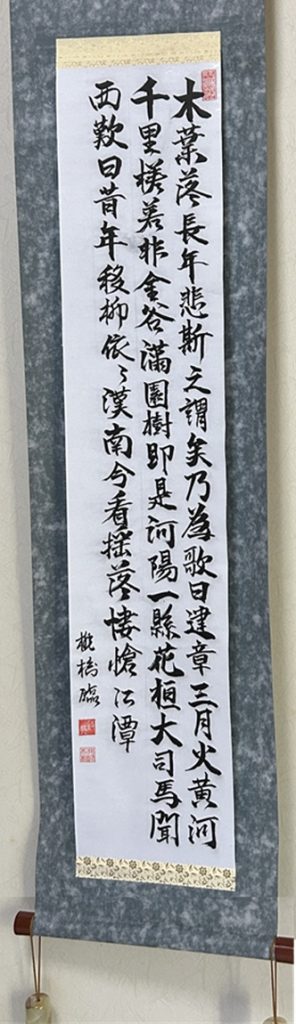 木葉落長年悲斯之謂矣乃為歌曰建章三月火黃河
千里槎若非金谷滿園樹即是河陽一縣花桓大司馬聞
而歎曰昔年移柳依々漢南今看搖落悽愴江潭
臨